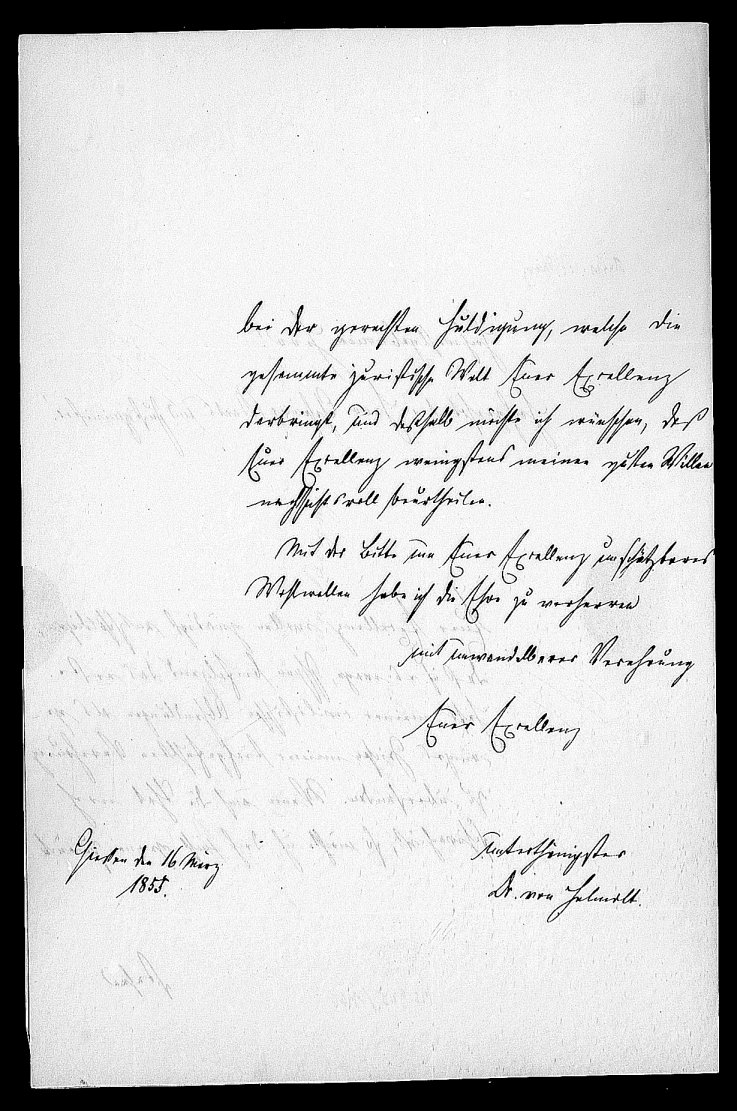 bei der gerechten Huldigung, welche die
gesammte juristische Welt Euer Excellenz
darbringt, und deßhalb möchte ich wünschen, daß
Euer Excellenz wenigstens meinen guten Willen
nachsichtsvoll beurtheilen.
Mit der Bitte um Euer Excellenz unschätzbares
Wohlwollen habe ich die Ehre zu verharren
mit unwandelbarer Verehrung
Euer Excellenz
unterthänigster
Dr. von Helmolt.
Giessen den 16 März
1855.